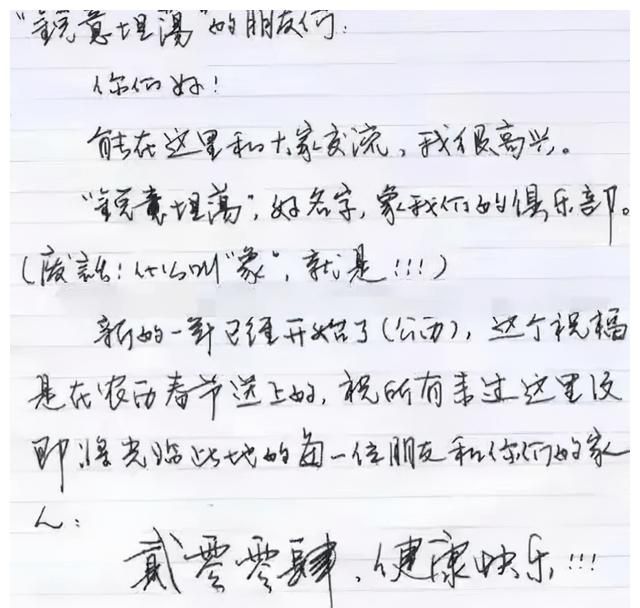 “銳意坦蕩”的朋友们:
你们好!
能在这里和大家交流,我很高兴。
“銳意坦蕩”,好名字,象我们的俱乐部。
(废話!什么叫“象”,就是!!!)
新的一年已经开始了(公历),这个祝福
是在农历春节送上的,祝所有来过这里及
即将光临此地的每一位朋友和你们的家
人:
貳零零肆,健康快乐!!!